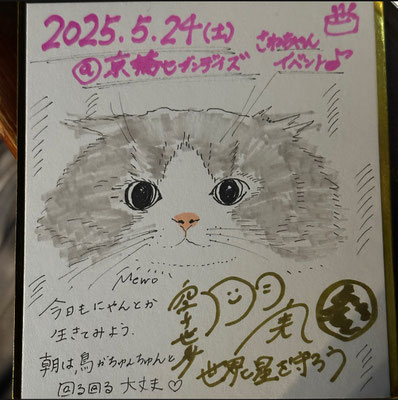 2025.5.24(土)
@京橋セブンデイズ
さわちゃん
イベント♪
Mewo
今日もにゃんとか
生きてみよう.
朝は、鳥がちゅんちゅんと
回る回る 大丈夫♡
世界と星を守ろう